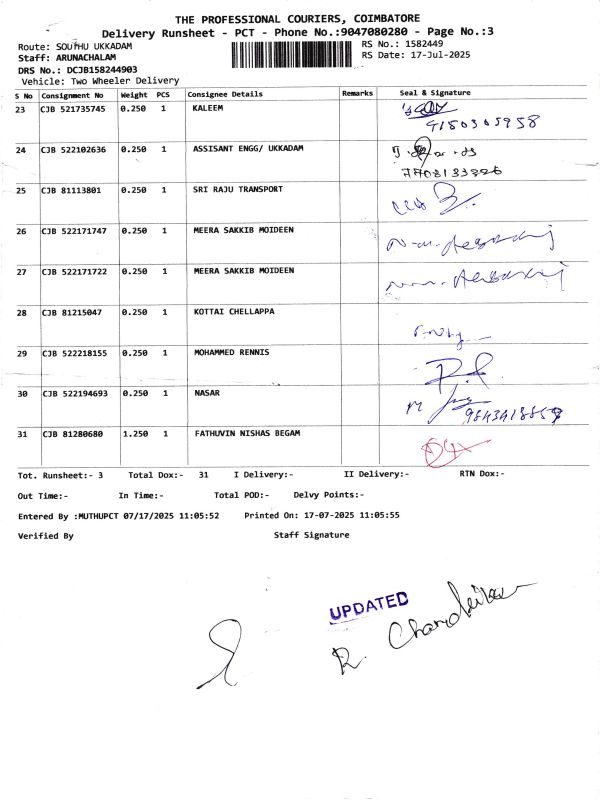 THE PROFESSIONAL COURIERS, COIMBATORE
Delivery Runsheet - PCT - Phone No.:9047080280 - Page No.:3
Route: SOUTHU UKKADAM RS No.: 1582449
Staff: ARUNACHALAM RS Date: 17-Jul-2025
DRS No.: DCJB158244903
Vehicle: Two Wheeler Delivery
S No Consignment No Weight PCS Consignee Details Remarks Seal & Signature
23 CJB 521735745 0.250 1 KALEEM
9150305958
24 CJB 522102636 0.250 1 ASSISANT ENGG/ UKKADAM
25 CJB 81113801 0.250 1 SRI RAJU TRANSPORT
26 CJB 522171747 0.250 1 MEERA SAKKIB MOIDEEN
27 CJB 522171722 0.250 1 MEERA SAKKIB MOIDEEN
28 CJB 81215047 0.250 1 KOTTAI CHELLAPPA
29 CJB 522218155 0.250 1 MOHAMMED RENNIS
30 CJB 522194693 0.250 1 NASAR
31 CJB 81280680 1.250 1 FATHUVIN NISHAS BEGAM
Tot. Runsheet:- 3 Total Dox:- 31 I Delivery:- II Delivery:- RTN Dox:-
Out Time:- In Time:- Total POD:- Delvy Points:-
Entered By :MUTHUPCT 07/17/2025 11:05:52 Printed On: 17-07-2025 11:05:55
Verified By Staff Signature
UPDATED